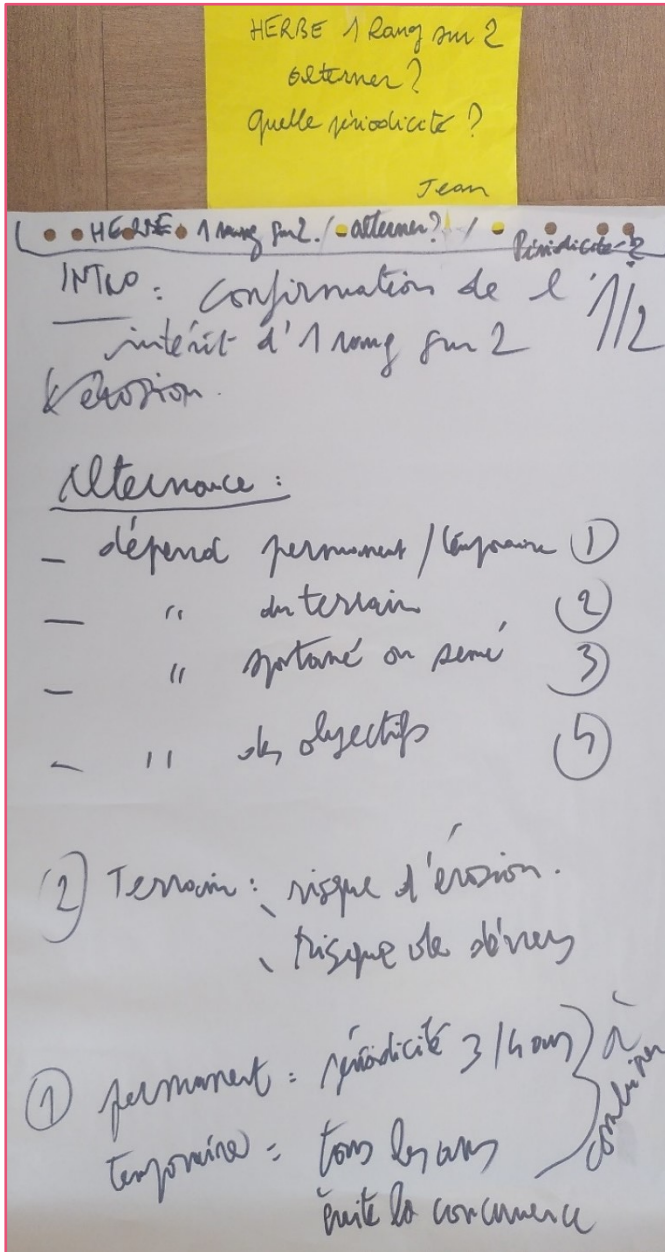 HERBE 1 Rang sur 2
alterner?
Quelle périodicité?
Jean
HERBE 1 rang sur 2. / alterner? / Périodicité?
INTRO : confirmation de l'
intérêt d'1 rang sur 2
érosion.
1/2
Alternance :
- dépend permanent / temporaire ①
- " du terrain ②
- " spontané ou semé ③
- " des objectifs ④
② Terrain : risque d'érosion.
risque de dévers
① permanent = périodicité 3/4 ans } à combiner
temporaire = tous les ans
évite la concurrence